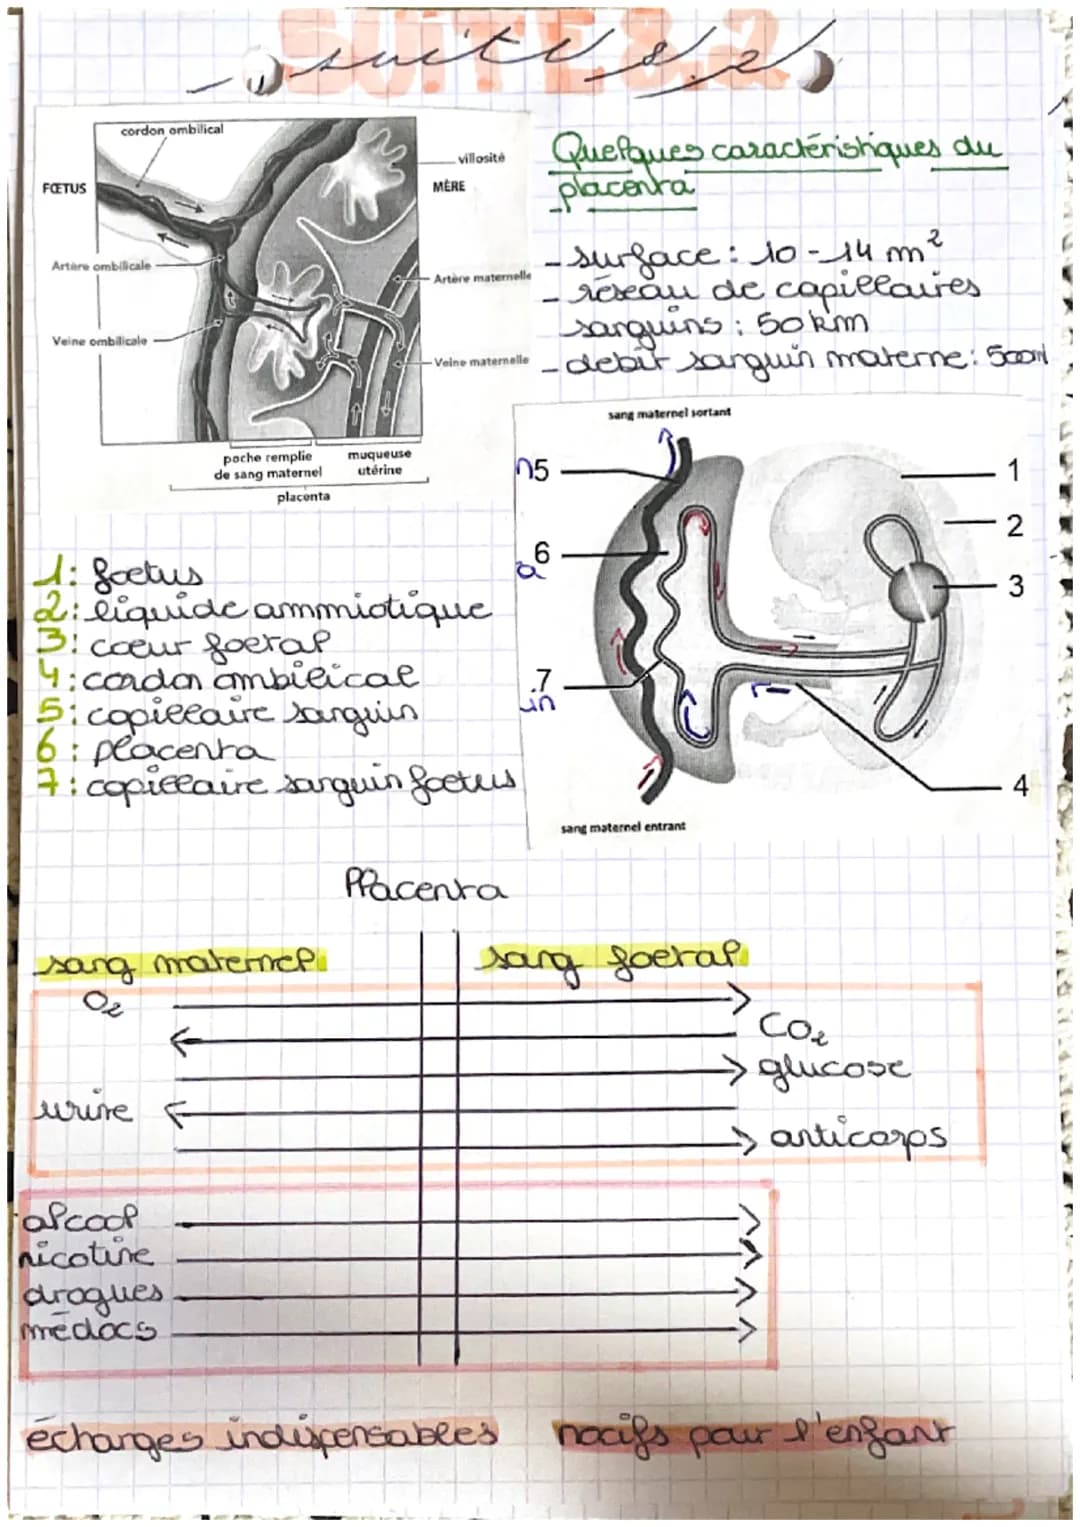 suite 8.2
cordon ombilical
villosité
FŒTUS
MÈRE
Artère ombilicale
Artère maternelle
Veine ombilicale
Veine maternelle
poche remplie
de sang maternel
muqueuse
utérine
placenta
Quelques caractéristiques du
placenta
- surface : 10 - 14 m²
- réseau de capillaires
sanguins : 50 km
- débit sanguin materne : 500ml
sang maternel sortant
5
6
7
1
2
3
4
sang maternel entrant
1 : foetus
2 : liquide ammiotique
3 : coeur foetal
4 : cordon ombilical
5 : capillaire sanguin
6 : placenta
7 : capillaire sanguin foetus
Placenta
sang maternel
sang foetal
O₂
CO₂
glucose
urine
anticorps
alcool
nicotine
drogues
médocs
échanges indispensables
nocifs pour l'enfant